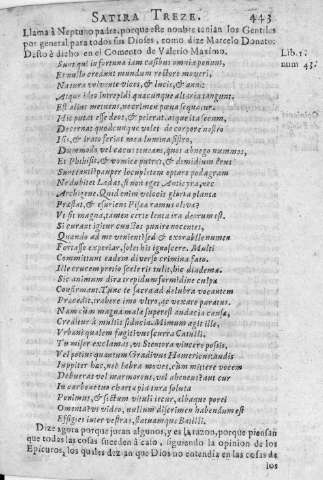 SATIRA TREZE. 443
Llama à Neptuno padre, porque este nombre tenian los Gentiles
por general para todos sus Dioses, como dize Marcelo Donato:
Desto è dicho en el Comento de Valerio Maximo.
Lib. 1.
num 43.
Sunt qui in fortunæ iam casibus omnia ponunt,
Et nullo credant mundum rectore moueri,
Natura voluente vices, & lucis, & anni:
Atque ideo intrepidi quæcunque altaria tangunt.
Est alius metuens, ne crimen pœna sequatur.
Hic putat esse deos, & peierat, atque ita secum,
Decernat quodcunque volet de corpore nostro
Isis, & irato feriat mea lumina sistro,
Dummodo vel cæcus teneam, quos abnego nummos,
Et Phthisis, & vomicæ putres, & dimidium crus
Sunt tanti? pauper locupletem optare podagram
Ne dubitet Ladas, si non eget Anticyra, nec
Archigene. Quid enim velocis gloria planta
Præstat, & esuriens Pisææ ramus oliuæ?
Vt sit magna, tamen certe lenta ira deorum est.
Si curant igitur cunctos punire nocentes,
Quando ad me venient? sed & exorabile numen
Fortasse experiar, solet his ignoscere. Multi
Committunt eadem diuerso crimina fato.
Ille crucem pretio sceleris tulit, hic diadema.
Sic animum diræ trepidum formidine culpæ
Confirmant. Tunc te sacra ad delubra vocantem
Præcedit, trahere imo vltro, ac vexare paratus.
Nam cùm magna malæ superest audacia causæ,
Creditur à multis fiducia. Mimum agit ille,
Vrbani qualem fugitiuus scurra Catulli.
Tu miser exclamas, vt Stentora vincere possis,
Vel potius quantum Gradiuus Homericus: audis
Iuppiter hæc, nec labra moues, cùm mittere vocem
Debueras vel marmoreus, vel aheneus? aut cur
In carbone tuo charta pia tura soluta
Ponimus, & sectum vituli iecur, albaque porci
Omenta? vt video, nullum discrimen habendum est
Effigies inter vestras, statuamque Batilli.
Dize agora porque juran algunos, y es la razon, porque piensan
que todas las cosas suceden à caso, siguiendo la opinion de los
Epicuros, los quales dezian que Dios no entendia en las cosas de
los